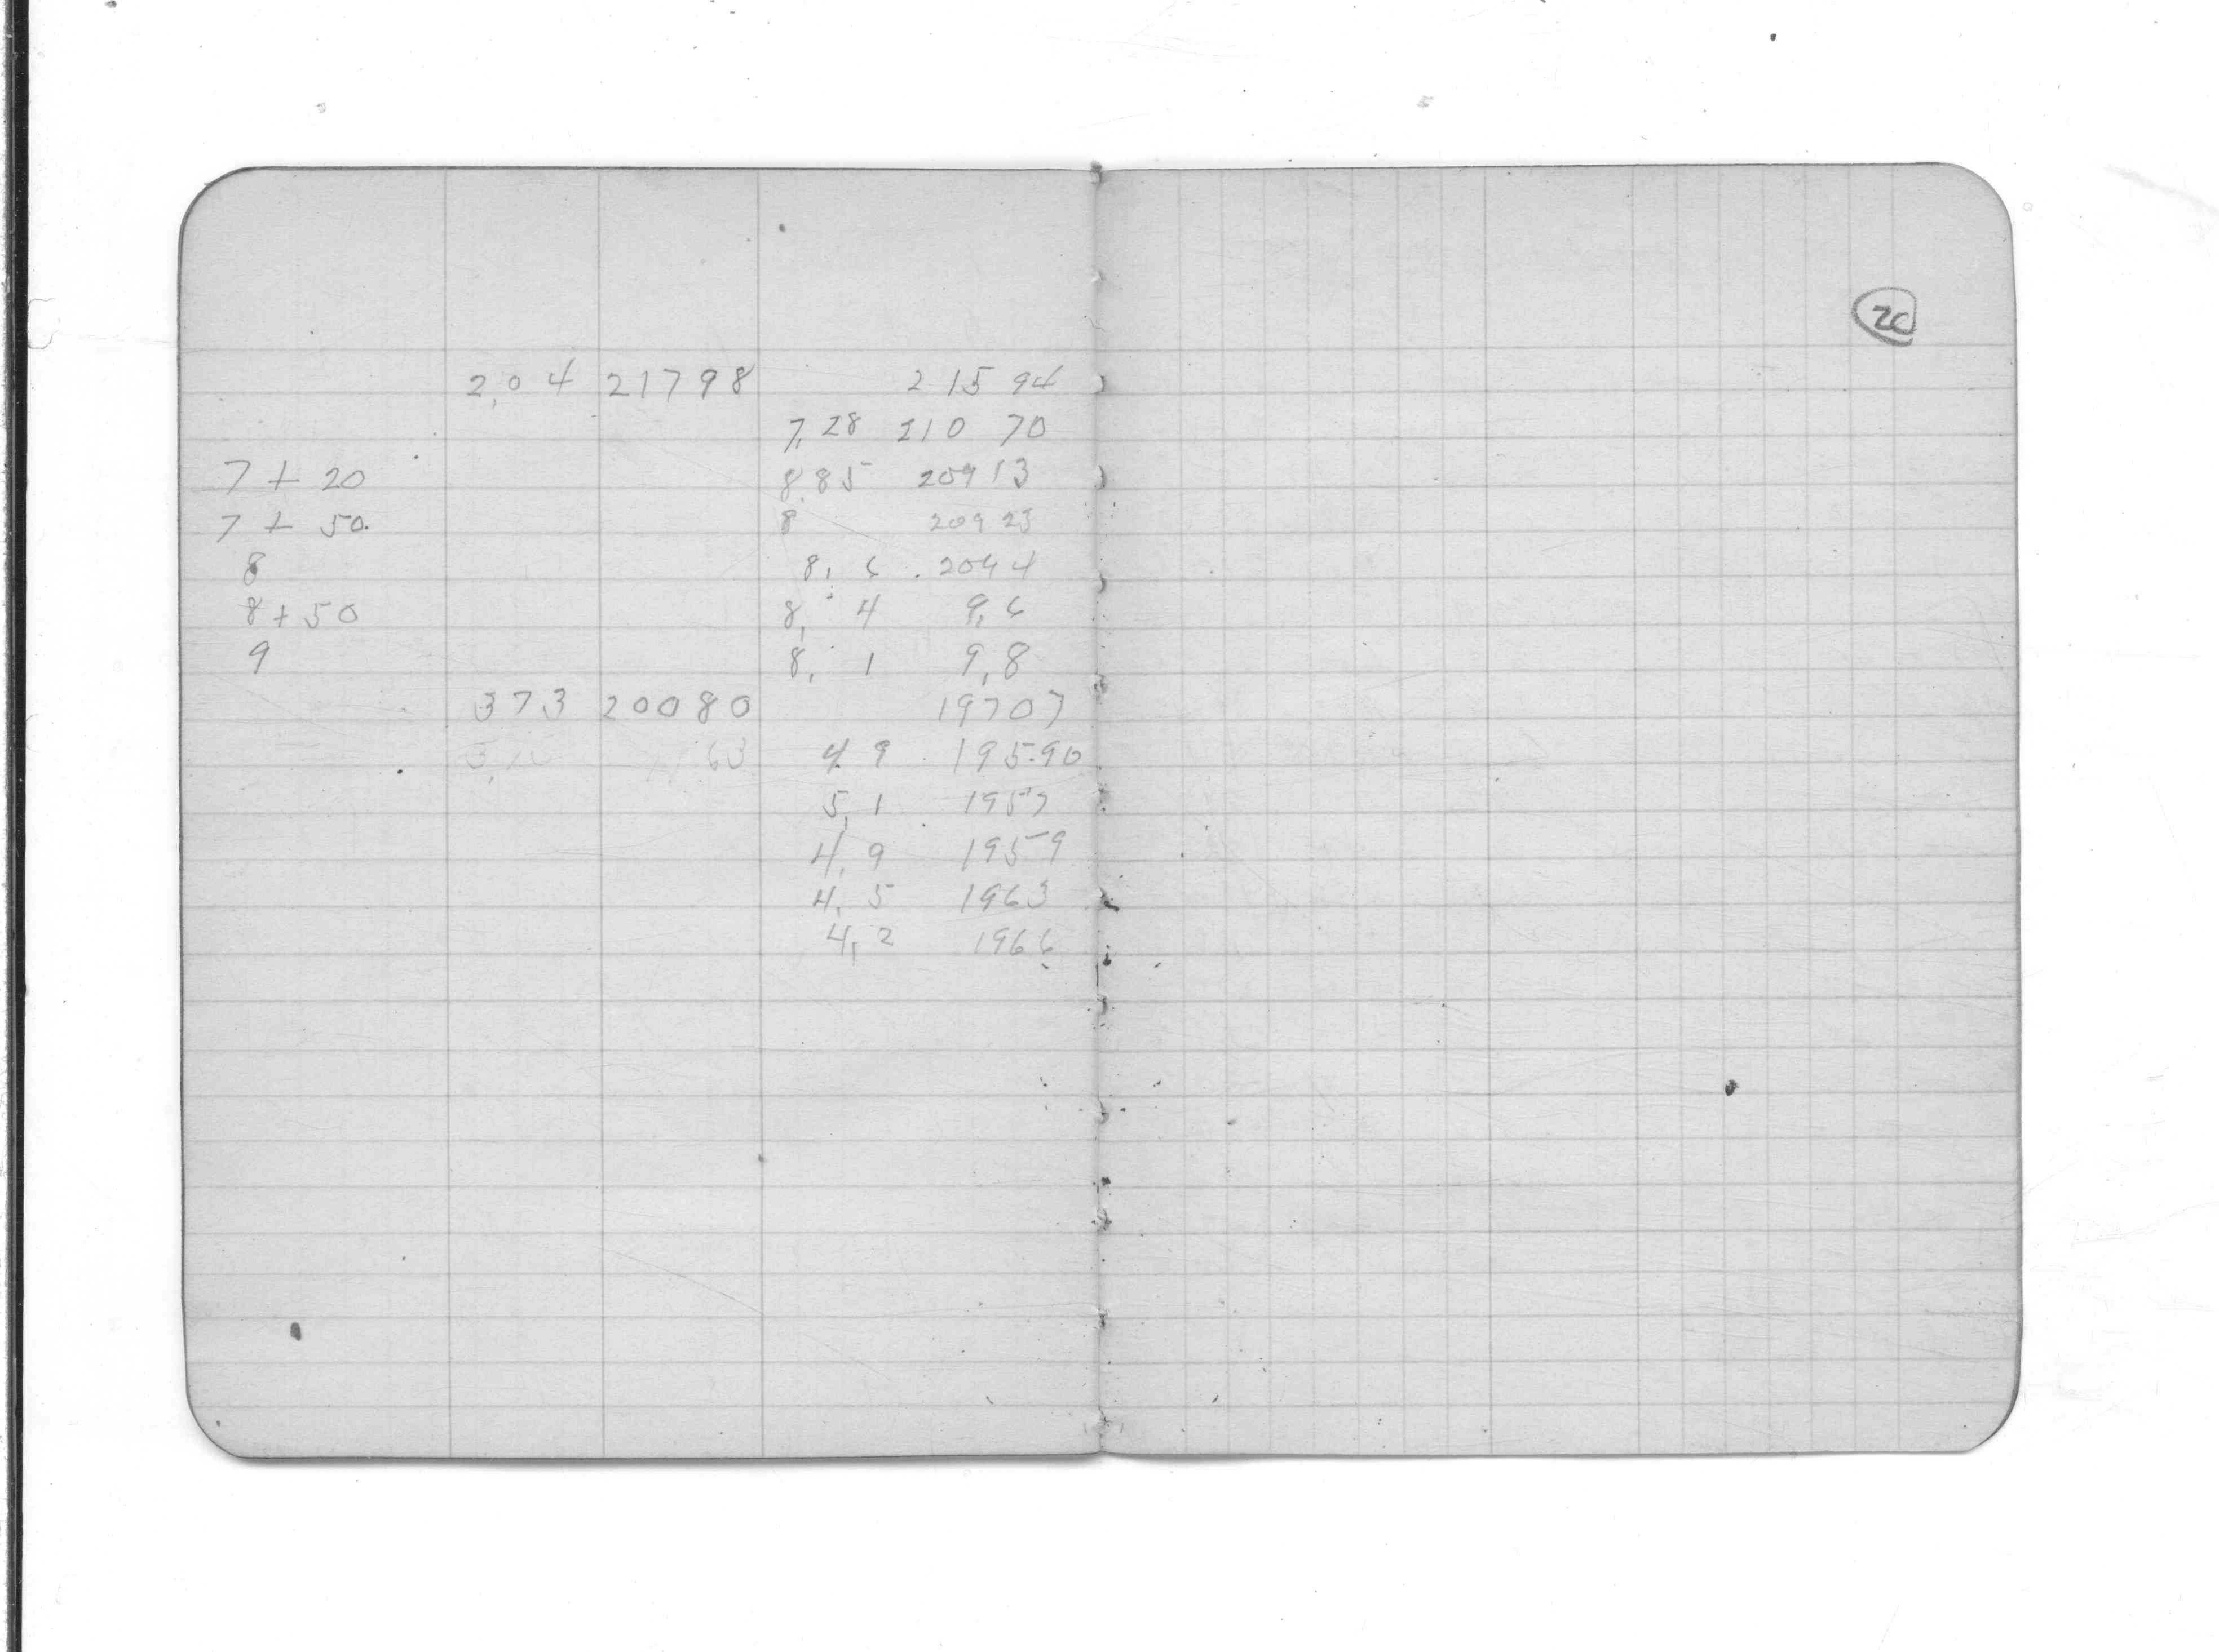 2,04 21798 215 94
7,28 210 70
7 + 20 8,85 209 13
7 + 50. 8 209 23
8 8, 6 .2094
8 + 50 8, 4 9,6
9 8, 1 9,8
373 20080 19707
63 4 9 195.90
5,1 1957
4,9 1959
4,5 1963
4,2 1966